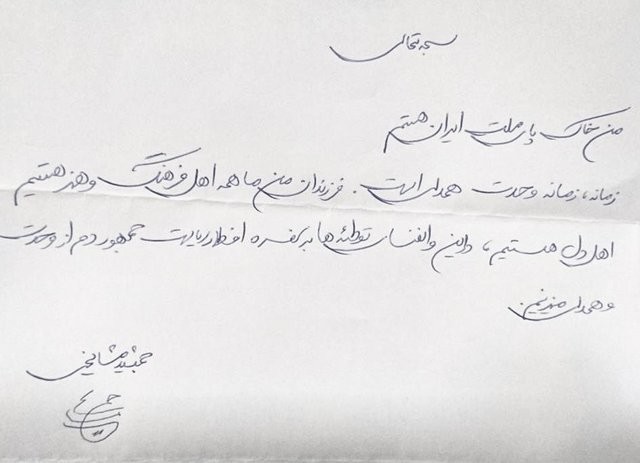 بسمه تعالی
من خاک پای ملت ایران هستم
زمانه، زمانه وحدت همدلی است. فرزندان من ما همه اهل فرهنگ و هنر هستیم
اهل دل هستیم، در این وانفسای توطئه‌ها بر سفره افطار ریاست جمهور دم از وحدت
و همدلی میزنیم.
جمشید مشایخی